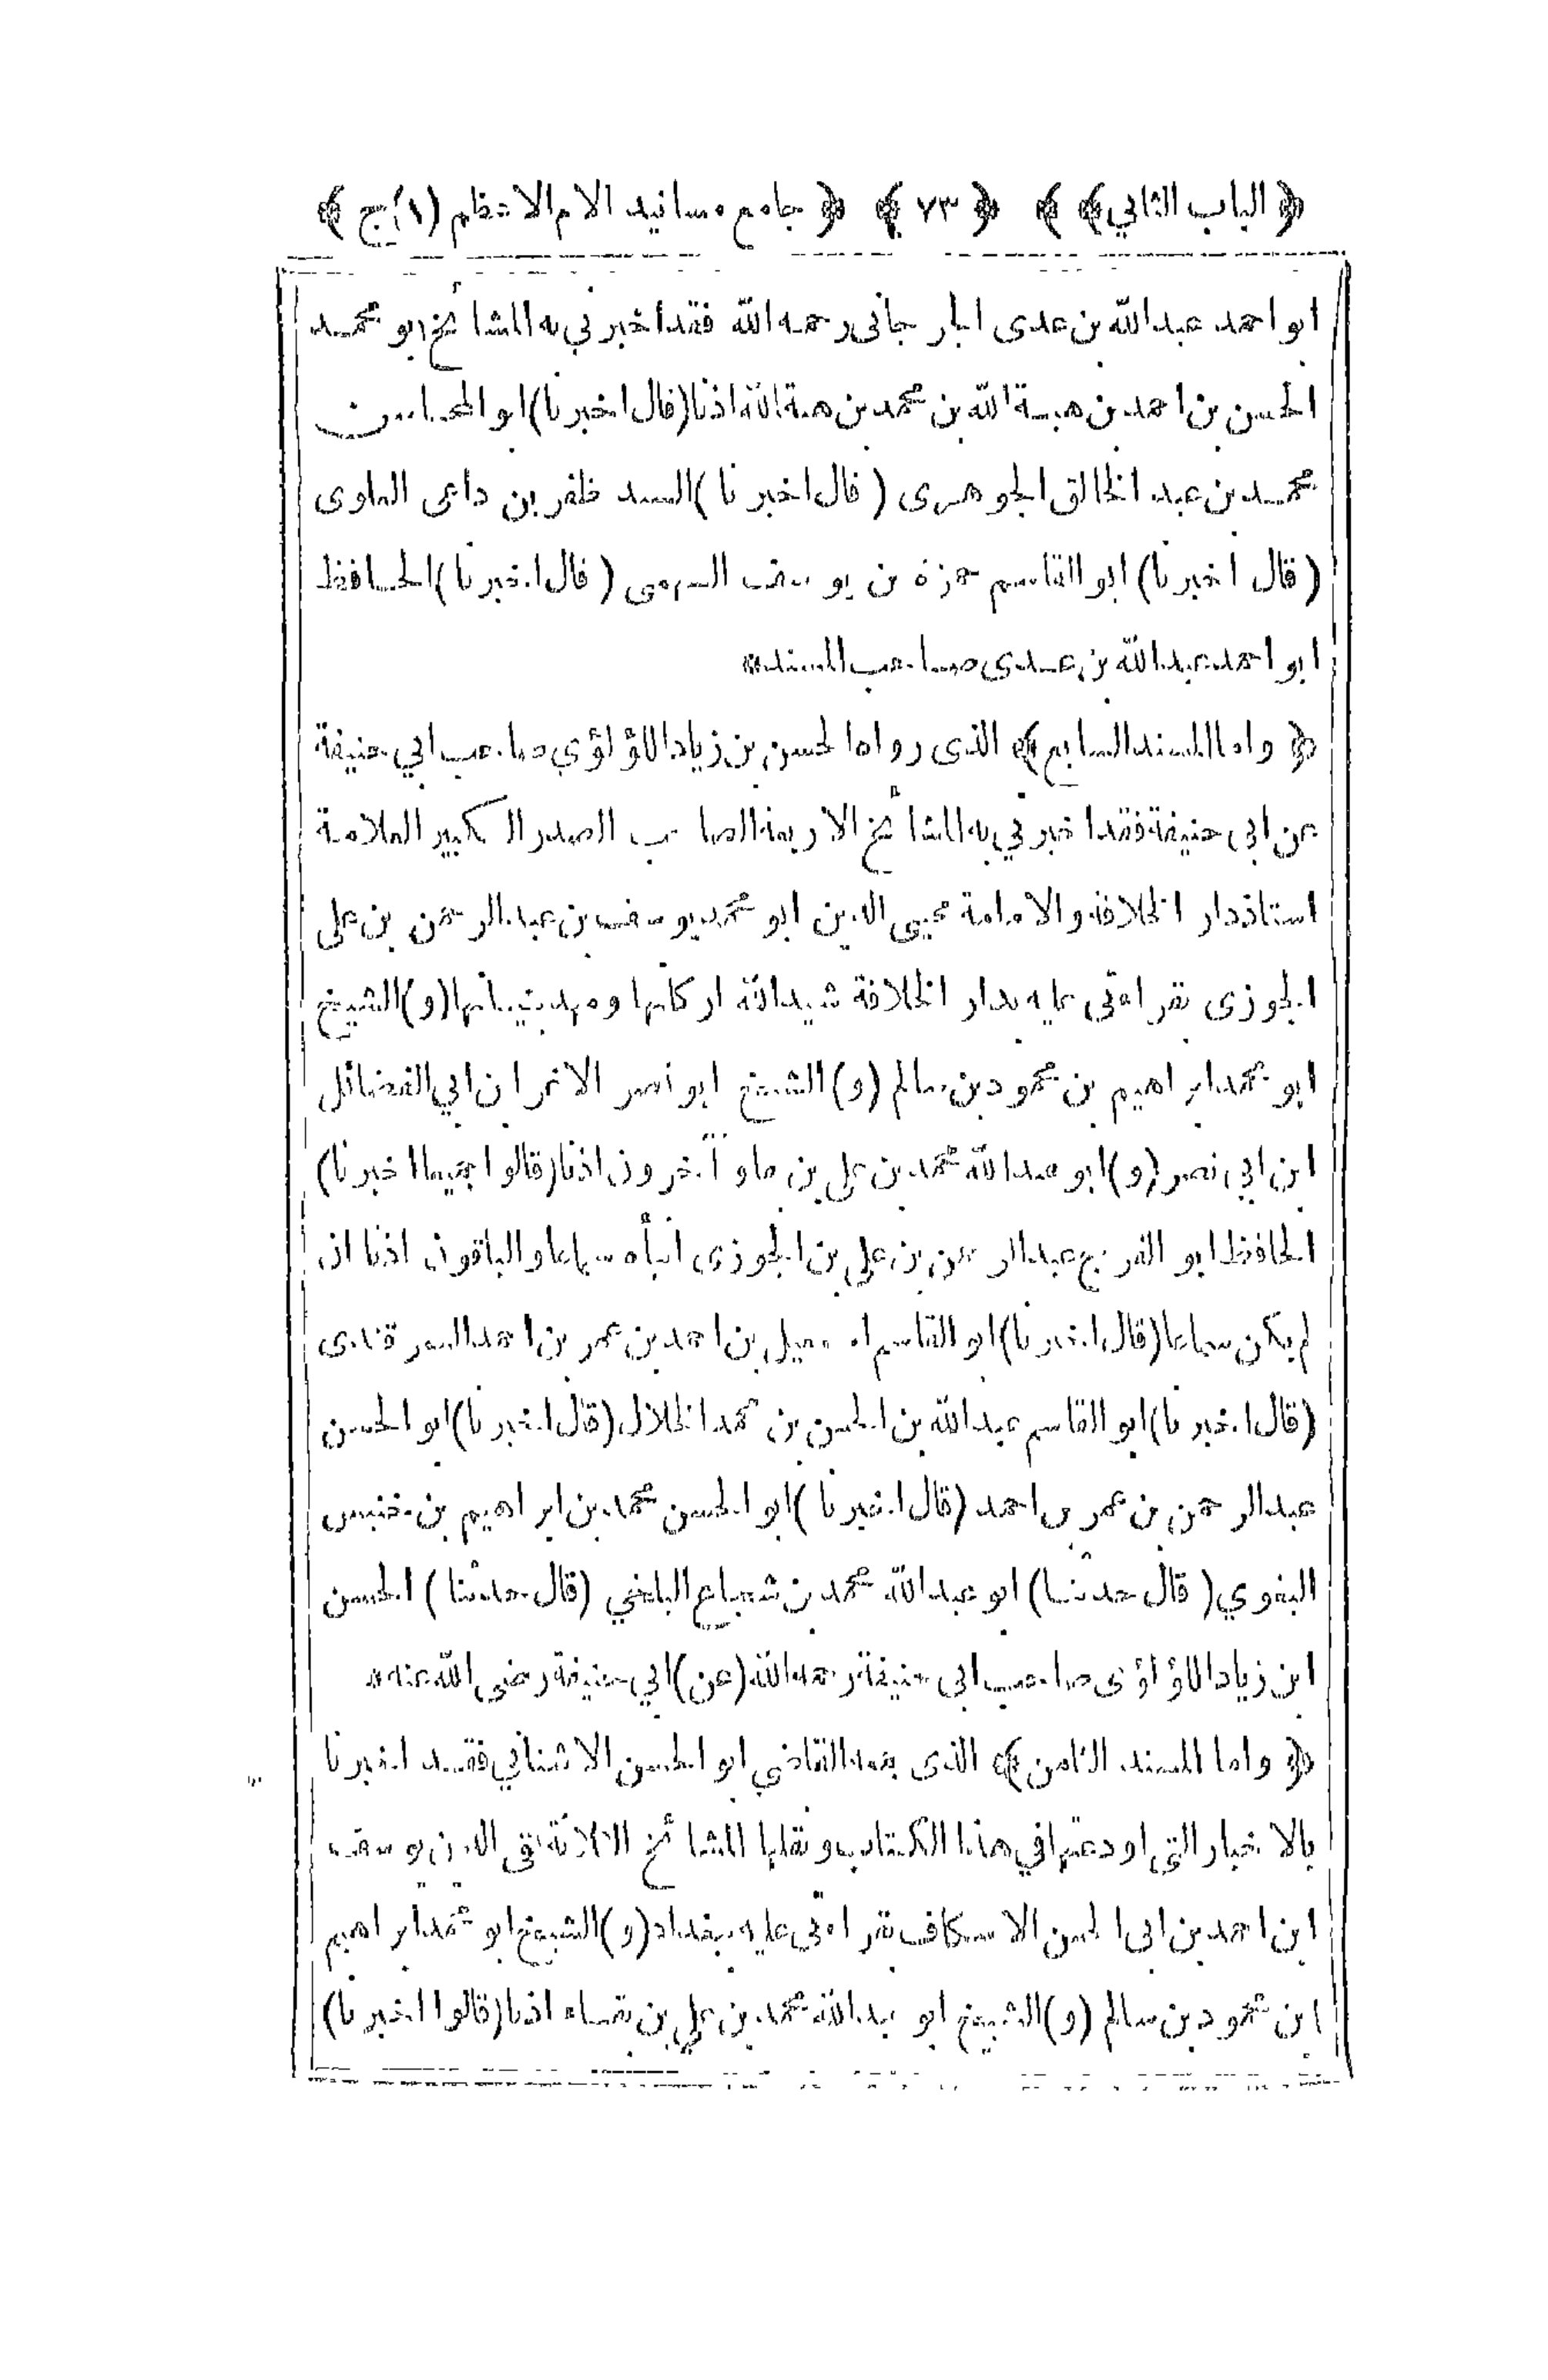 ﴿ الباب الثاني ﴾ ﴿ ٧٣ ﴾ ﴿ جامع مسانيد الامام الاعظم (١) ج ﴾
ابو احمد عبد الله بن عدى الجرجانى رحمه الله فقد اخبرني به المشائخ ابو محمد
الحسن بن احمد بن هبة الله بن محمد بن هبة الله اذنا (قال اخبرنا) ابو المحاسن
محمد بن عبد الخالق الجوهرى (قال اخبرنا) السيد ظفر بن داعى العلوى
(قال اخبرنا) ابو القاسم حمزة بن يوسف السهمى (قال اخبرنا) الحافظ
ابو احمد عبد الله بن عدى صاحب المسند *
﴿ واما المسند السابع ﴾ الذى رواه الحسن بن زياد اللؤلؤي صاحب ابي حنيفة
عن ابى حنيفة فقد اخبرني به المشائخ الاربعة الصاحب الصدر الكبير العلامة
استاذدار الخلافة والامامة محيى الدين ابو محمد يوسف بن عبد الرحمن بن على
الجوزى بقراءتى عليه بدار الخلافة شيد الله اركانها ومهد بنيانها (و) الشيخ
ابو محمد ابراهيم بن محمود بن سالم (و) الشيخ ابو نصر الاغر ابن ابي الفضائل
ابن ابي نصر (و) ابو عبد الله محمد بن علي بن وآخرون اذنا (قالوا جميعا اخبرنا)
الحافظ ابو الفرج عبد الرحمن بن علي بن الجوزى انبأه سماعا والباقون اذنا ان
لم يكن سماعا (قال اخبرنا) ابو القاسم اسمعيل بن احمد بن عمر بن احمد السمرقندى
(قال اخبرنا) ابو القاسم عبد الله بن الحسن بن محمد الخلال (قال اخبرنا) ابو الحسن
عبد الرحمن بن عمر بن احمد (قال اخبرنا) ابو الحسن محمد بن ابراهيم بن خنيس
البغوي (قال حدثنا) ابو عبد الله محمد بن شجاع البلخي (قال حدثنا) الحسن
ابن زياد اللؤلؤى صاحب ابى حنيفة رحمه الله (عن) ابي حنيفة رضى الله عنه *
﴿ واما المسند الثامن ﴾ الذى جمعه القاضي ابو الحسن الاشناني فقد اخبرنا
بالاخبار التى اودعتها في هذا الكتاب ونقلها المشائخ الثلاثة تقى الدين يوسف
ابن احمد بن ابى الحسن الاسكاف بقراءتى عليه ببغداد (و) الشيخ ابو محمد ابراهيم
ابن محمود بن سالم (و) الشيخ ابو عبد الله محمد بن علي بن بقاء اذنا (قالوا اخبرنا)